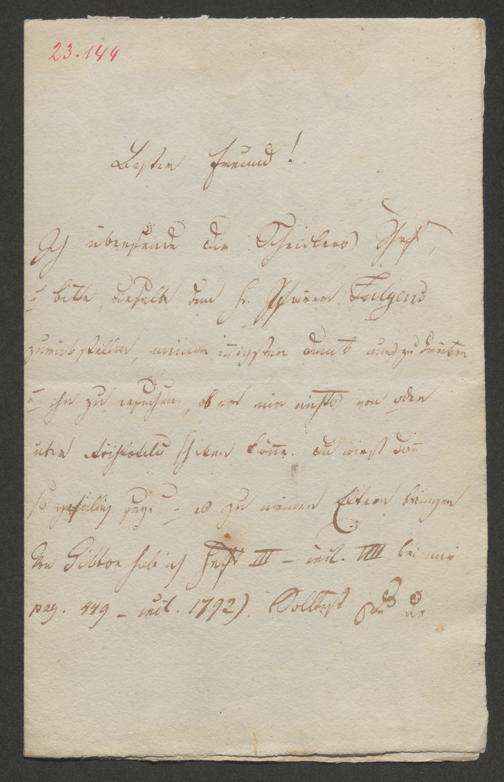 23.144
Bester Freund!
Ich übersende dir Schreibers Heft,
u bitte dasselbe dem H. Pfarrer Fulgens
zurückstellen, meinen innigsten Dank auszudrücken
u ihn zu ersuchen, ob er mir nichts von oder
über Aristoteles schicken könne. Du wirst dann
so gefällig seyn es zu meinen Eltern bringen
Von Gibbon hab ich Heft III – incl. VIII bei mir
pag. 449 – incl. 1792) Solltest du